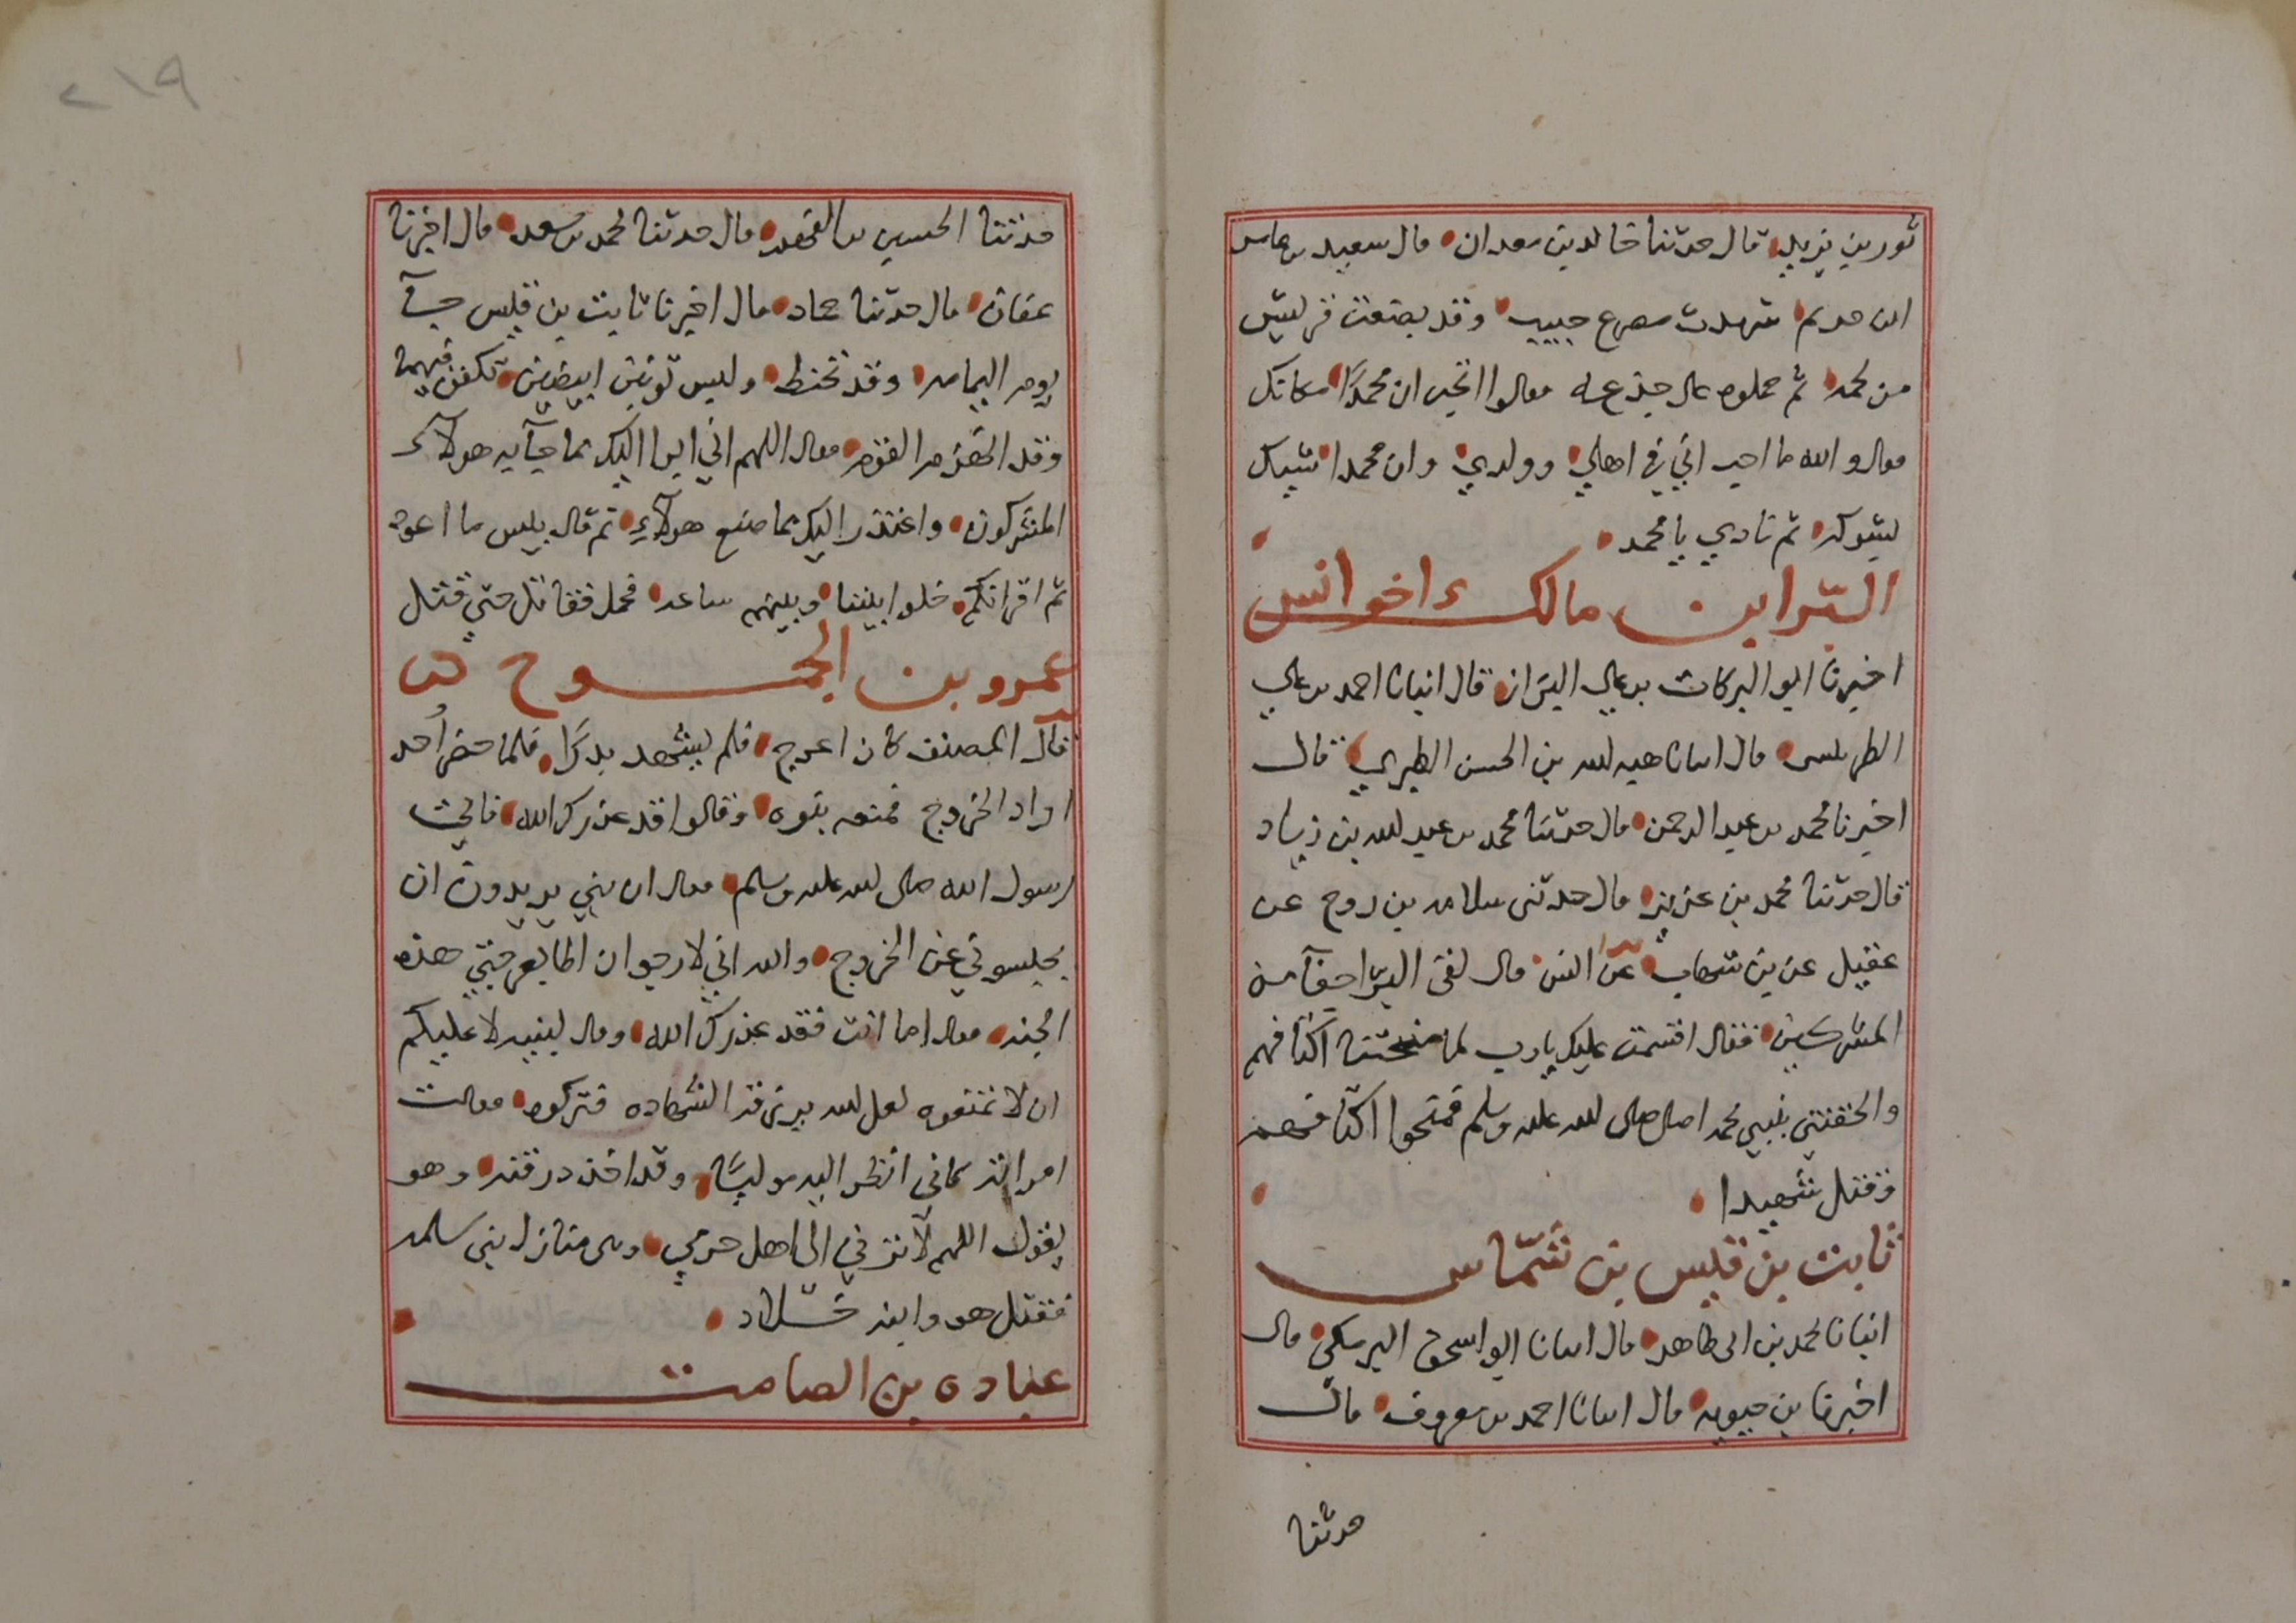 ثور بن يزيد قال حدثنا خالد بن معدان قال سعيد بن عامر
ابن حديم شهدت مصرع خبيب وقد بضعت قريش
من لحمه ثم حملوه على جذعه فقالوا اتحب ان محمدًا مكانك
فقال والله ما احب اني في اهلي وولدي وان محمدا شيك
بشوكه ثم نادي يا محمد
البّرا بن مالك اخوانس
اخبرنا ابو البركات بن علي البزاز قال انبانا احمد بن علي
الطريثيثي قال انبانا هبه الله بن الحسن الطبري قال
اخبرنا محمد بن عبد الرحمن قال حدثنا محمد بن عبد الله بن زياد
قال حدثنا محمد بن عزيز قال حدثنى سلامه بن روح عن
عقيل عن بن شهاب عن انس قال لقى البرا زحفا من
المشركين فقال اقسمت عليك يا رب لما منحتنا اكتافهم
والحقتني بنبيي محمد صلى الله عليه وسلم فمنحوا اكتافهم
فقتل شهيدا
ثابت بن قيس بن شمّاس
انبانا محمد بن ابى طاهر قال انبانا ابو اسحق البرمكي قال
اخبرنا بن حيويه قال انبانا احمد بن معروف قال
حدثنا
٢١٩
حدثنا الحسين بن الفهم قال حدثنا محمد بن سعد قال اخبرنا
عفان قال حدثنا حماد قال اخبرنا ثابت بن قيس جآ
يوم اليمامه وقد تحنط ولبس ثوبين ابيضين تكفن فيهما
وقد انهزم القوم فقال اللهم اني ابرا اليك مما جآ به هولآء
المشركون واعتذر اليك مما صنع هولآء ثم قال بيس ما اعود
ثم اقرانكم خلوا بيننا وبينهم ساعه فحمل فقاتل حتى قتل
عمرو بن الجمــوح
قال المصنف كان اعرج فلم يشهد بدرًا فلما حضر أحد
اراد الخروج فمنعه بنوه وقالوا قد عذرك الله فاتى
رسول الله صلى الله عليه وسلم فقال ان بني يريدون ان
يحبسوني عن الخروج والله اني لارجو ان اطا بعرجتي هذه
الجنه فقال اما انت فقد عذرك الله وقال لبنيه لا عليكم
ان لا تمنعوه لعل الله يرزقه الشهاده فتركوه فقالت
امراته كاني انظر اليه موليًا وقد اخذ درقته وهو
يقول اللهم لا تردني الى اهل حربي وهى منازل بنى سلمه
فقتل هو وابنه خــلاد
عباده بن الصامت